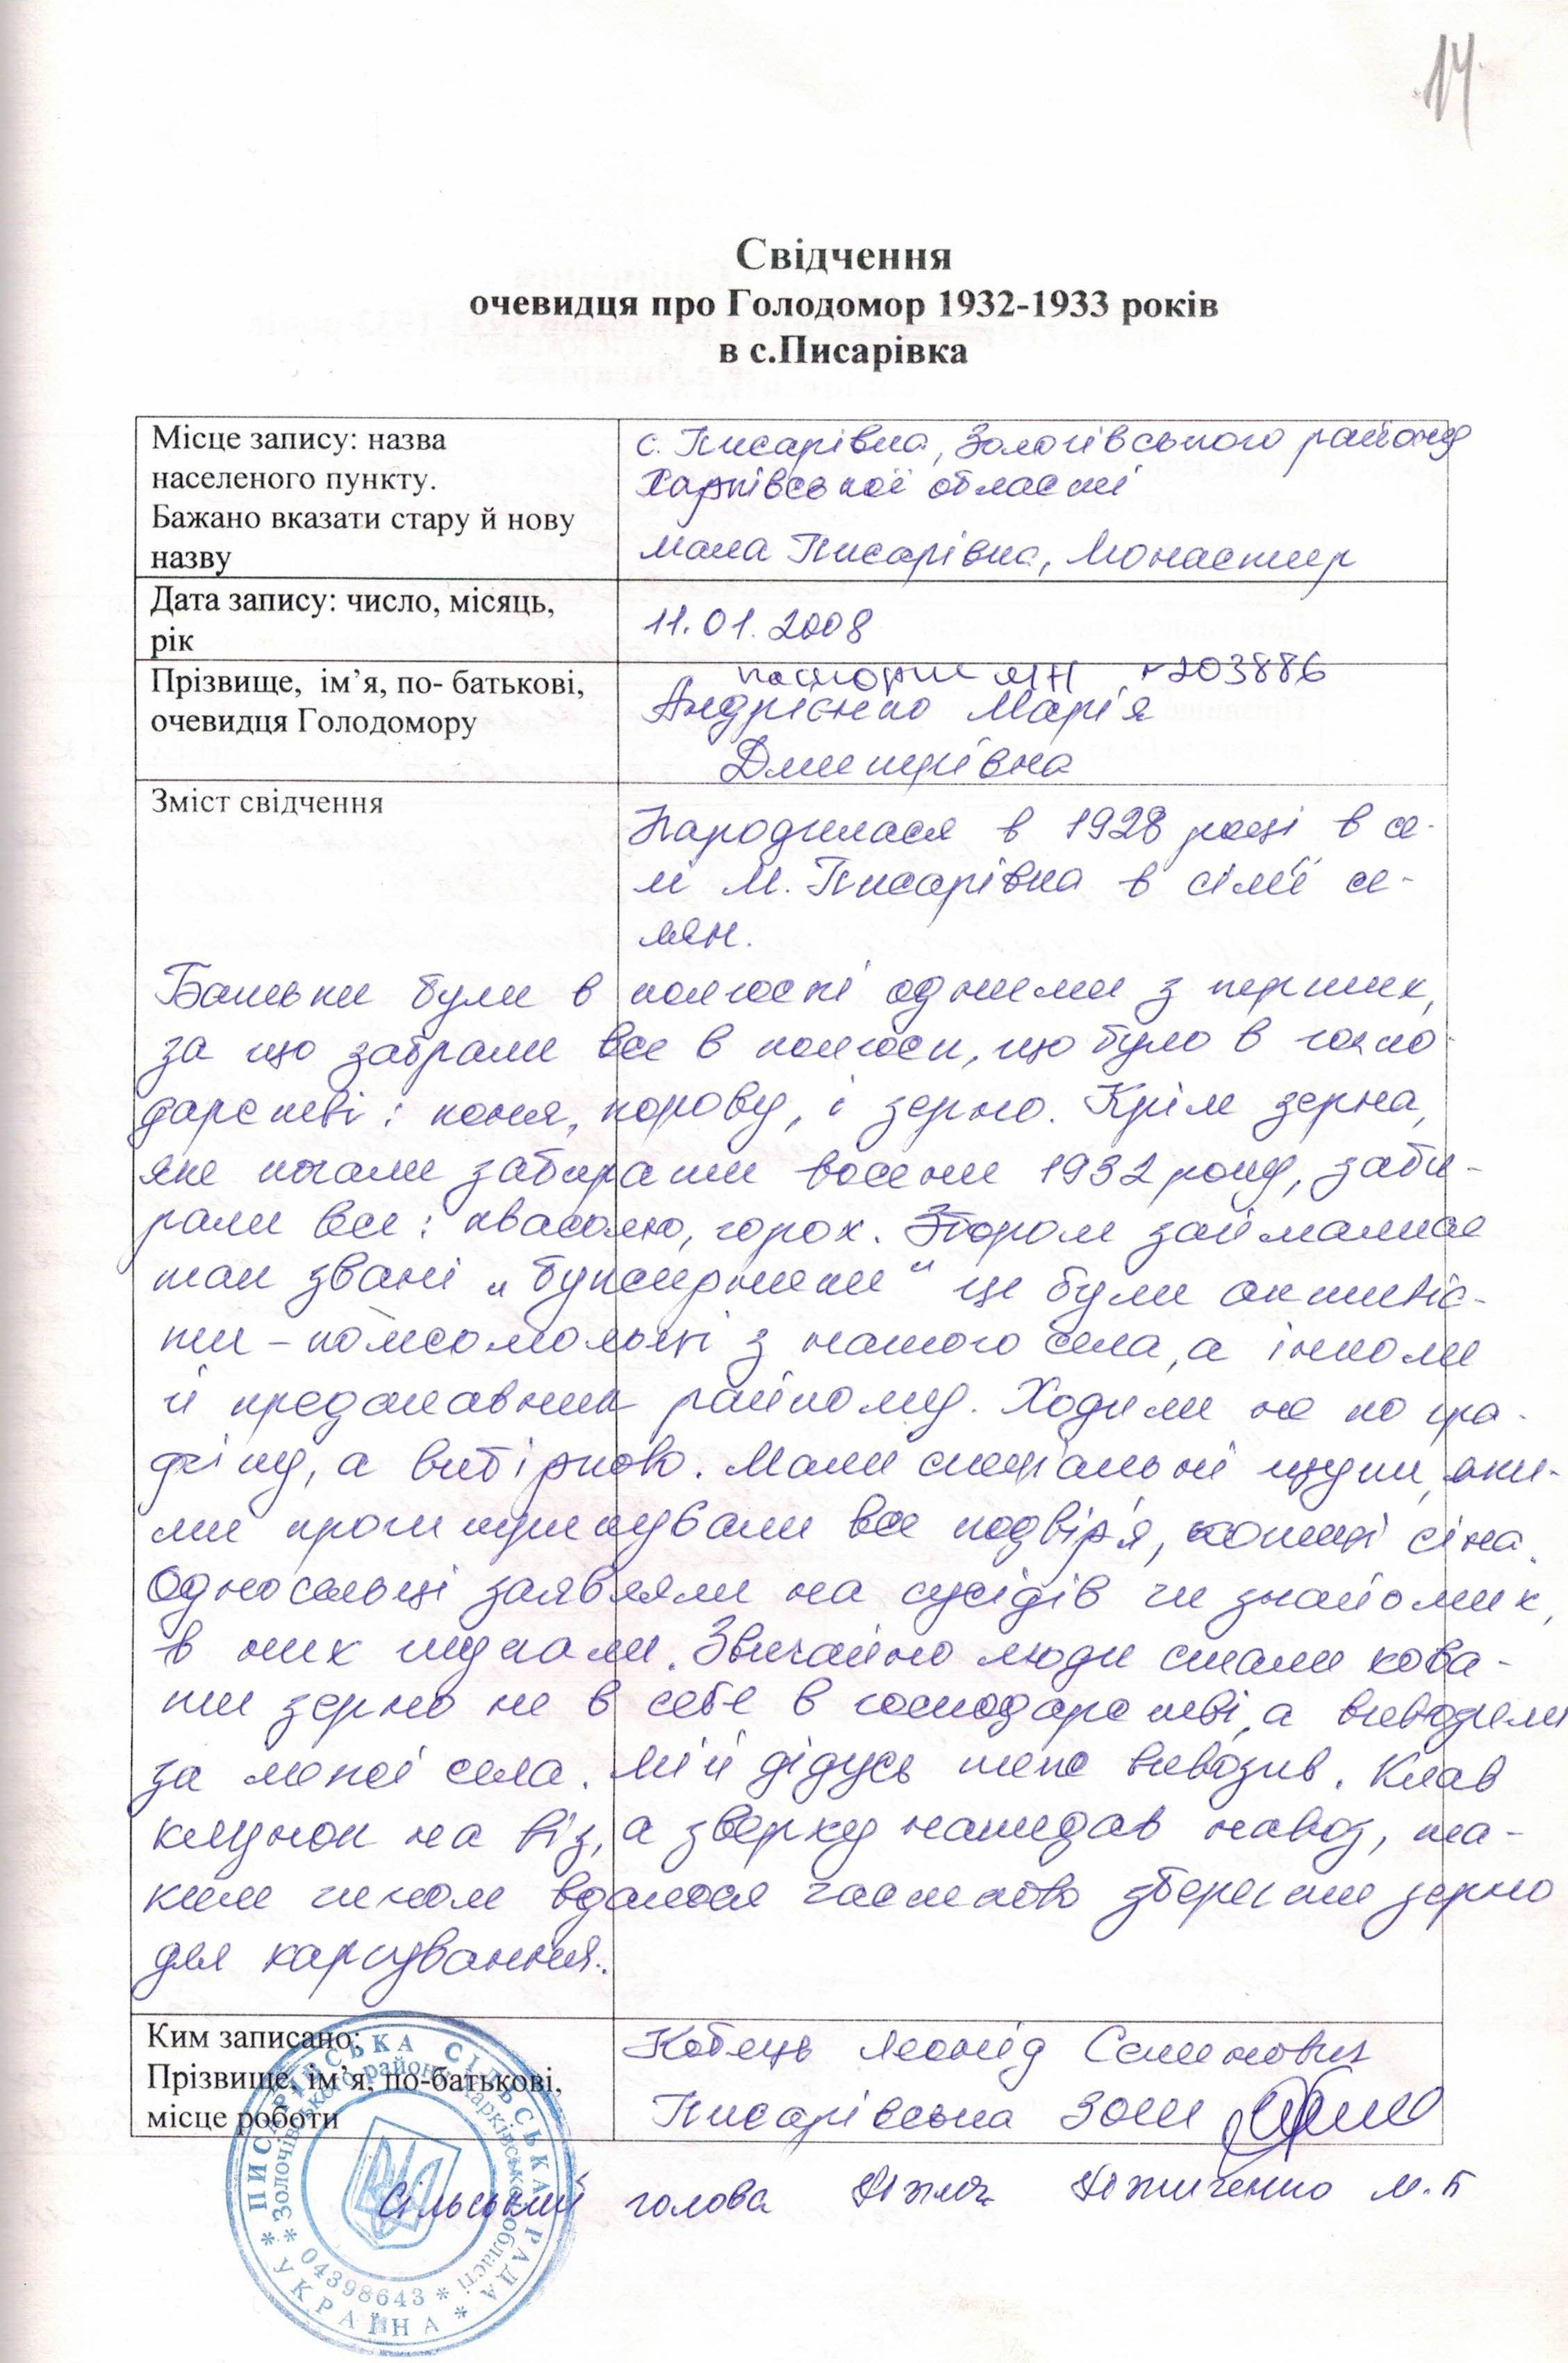 14
Свідчення
очевидця про Голодомор 1932-1933 років
в с.Писарівка
Місце запису: назва
населеного пункту.
Бажано вказати стару й нову
назву
с. Писарівка, Золочівського району
Харківської області
мала Писарівка, Монастир
Дата запису: число, місяць,
рік
11.01.2008
Прізвище, ім’я, по- батькові,
очевидця Голодомору
паспорт МН 203886
Андрієнко Марія
Дмитрівна
Зміст свідчення
Народилася в 1928 році в се-
лі М. Писарівка в сім'ї се-
лян.
Батьки були в колгоспі одними з перших,
за що забрали все в колгосп, що було в госпо-
дарстві: коня, корову, і зерно. Крім зерна,
яке почали забирати восени 1932 року, заби-
рали все: квасолю, горох. Збором займалися
так звані „буксирники“ це були активіс-
ти - комсомольці з нашого села, а інколи
й представник райкому. Ходили не по гра-
фіку, а вибірково. Мали спеціальні щупи, яки-
ми проштрикували все подвір'я, копиці сіна.
Односельці заявляли на сусідів чи знайомих,
в них шукали. Звичайно люди стали хова-
ти зерно не в себе в господарстві, а вивозили
за межі села. Мій дідусь теж вивозив. Клав
клунок на віз, а зверху накидав навоз, та-
ким чином вдалося частково зберегти зерно
для харчування.
Ким записано:
Прізвище, ім’я, по-батькові,
місце роботи
Кобець Леонід Семенович
Писарівська ЗОШ
Сільський голова М.П
ПИСАРІВСЬКА СІЛЬСЬКА РАДА * УКРАЇНА *
Золочівського району Харківської області * 04398643 *